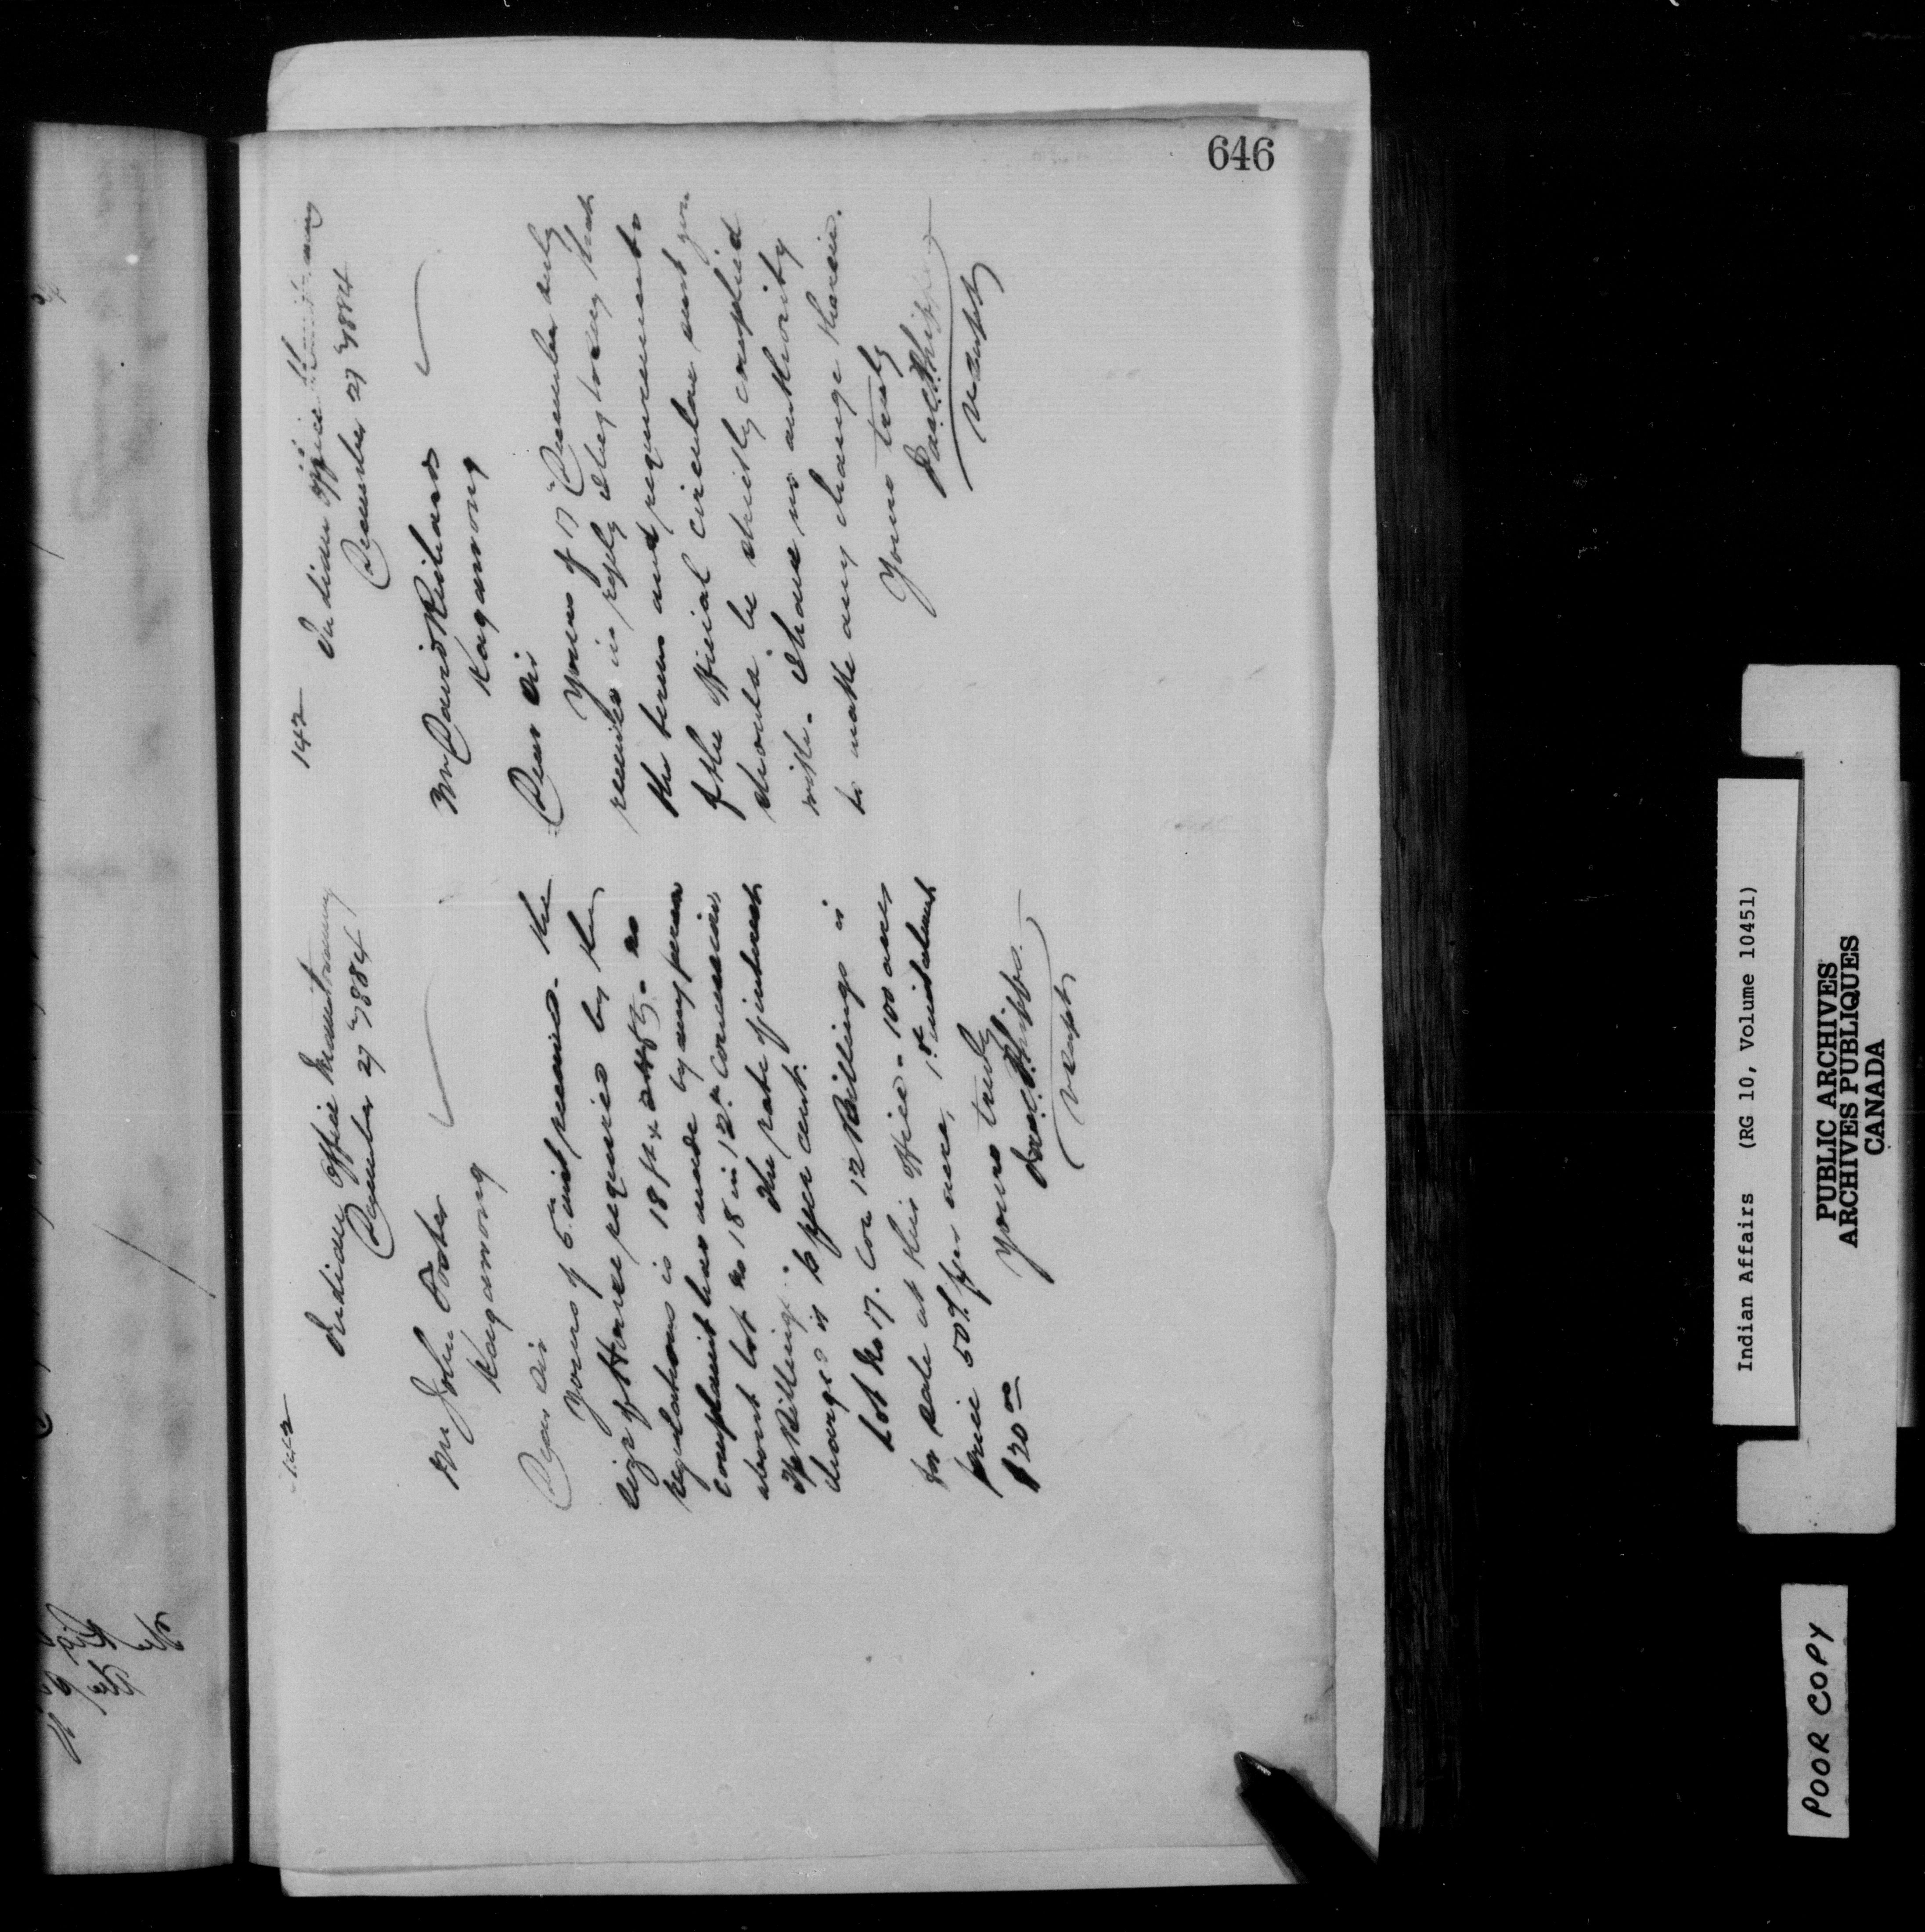 646
142
Indian Office Manitowaning
December 27th 1884
Mr John Foster
Kagawong
Dear Sir
Yours of 6th inst received. the
size of House required by the
regulations is 18 ft x 24 ft - no
complaint has made by any person
about lot No 18 in 12th Concession
of Billings. The rate of interest
charged is 6 per cent.
Lot No 17. Con 12 Billings is
for sale at this Office - 100 acres
price 50 cts per acre, 1st instalment
$20.00
Yours truly
Jas. C. Phipps.
V. Supt
142
Indian Office Manitowaning
December 27th 1884
Mr David Richards
Kagawong
Dear Sir
Yours of 17th December duly
received in reply I beg to say that
the terms and requirements
of the Official circular sent you
should be strictly complied
with. I have no authority
to make any change therein.
Yours truly
Jas. C. Phipps
V. Supt
Indian Affairs (RG 10, Volume 10451)
PUBLIC ARCHIVES
ARCHIVES PUBLIQUES
CANADA
POOR COPY